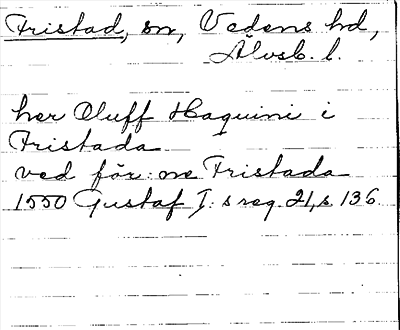 Fristad, sn, Vedens hd,
Älvsb. l.
her Oluff Haquini i
Fristada
ved för: ne Fristada
1550 Gustaf I: s reg. 21, s. 136